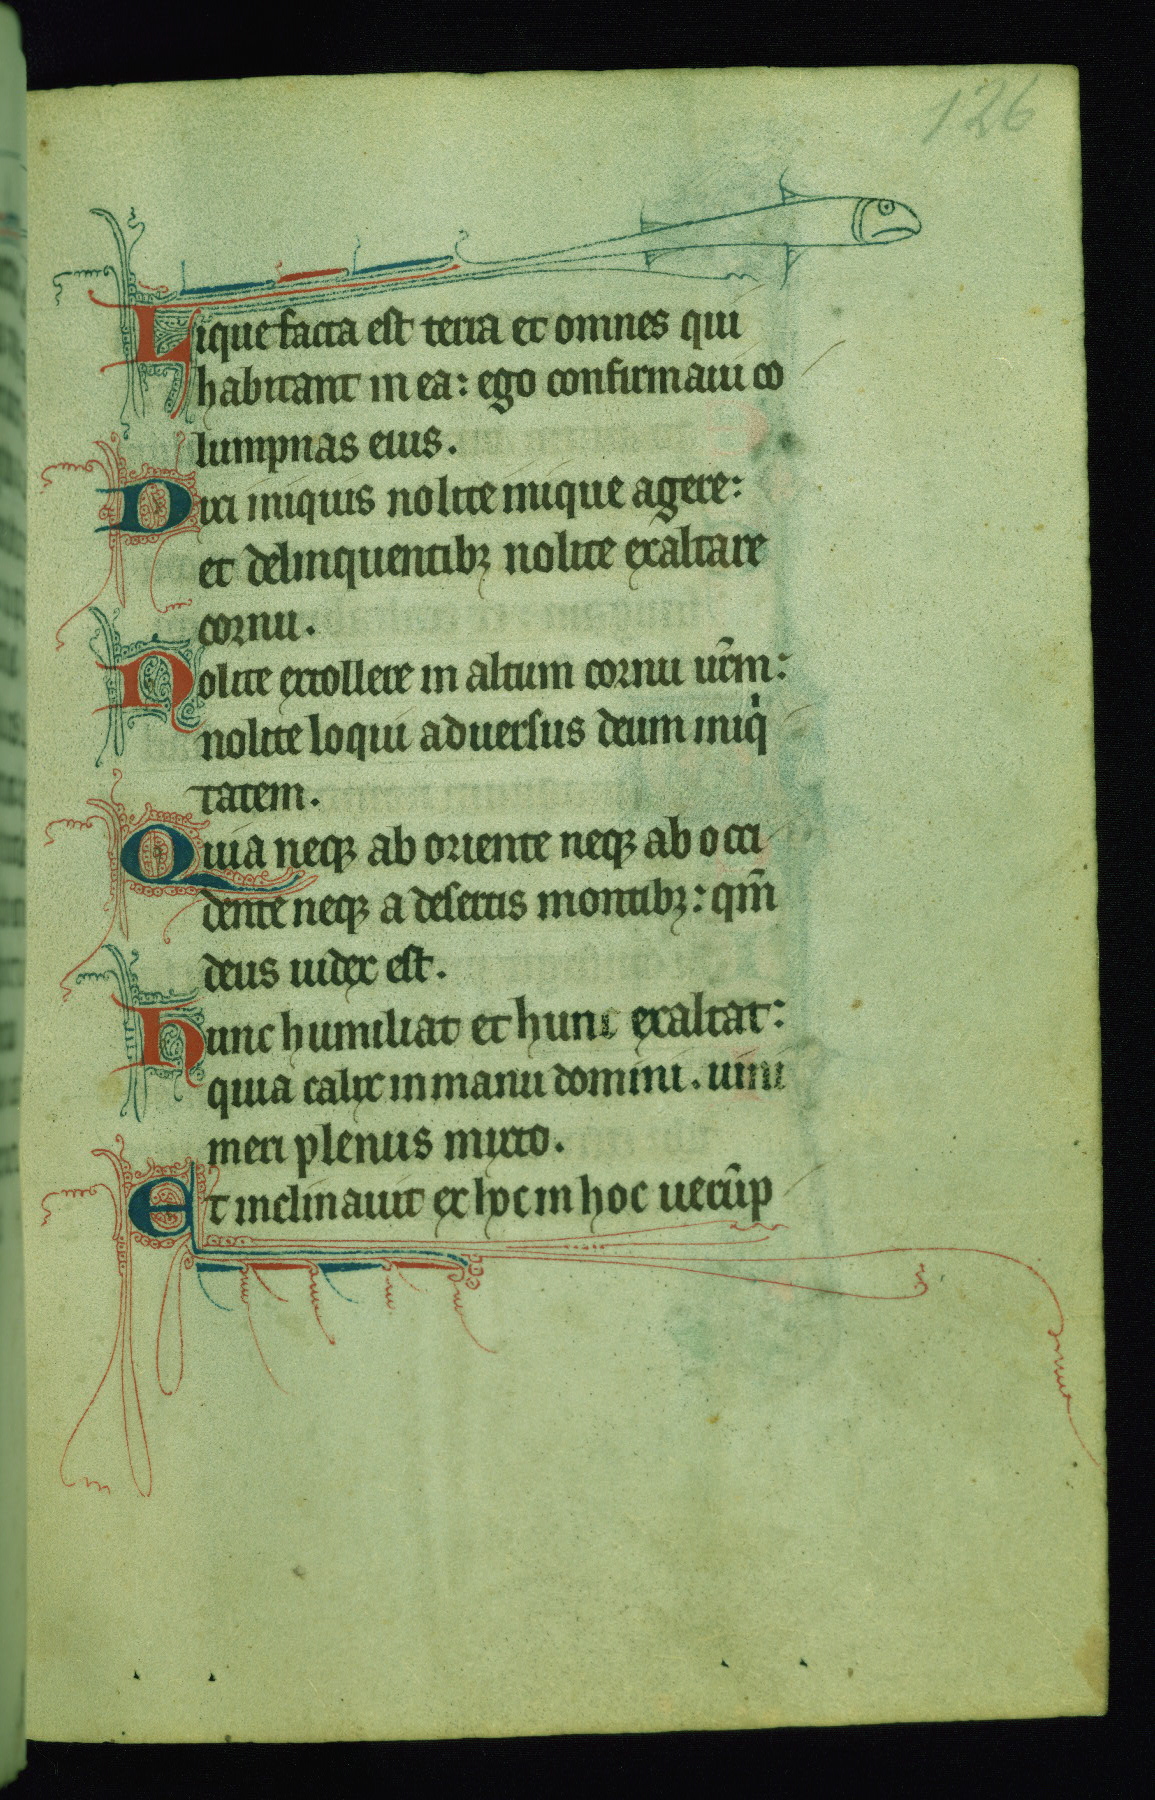 126
Lique facta est terra et omnes qui
habitant in ea: ego confirmaui co
lumpnas eius.
Dixi iniquis nolite inique agere:
et delinquentibꝫ nolite exaltare
cornu.
Nolite extollere in altum cornu ur̄m:
nolite loqui aduersus deum iniqͥ
tatem.
Quia neqꝫ ab oriente neqꝫ ab occi
dente neqꝫ a desertis montibꝫ: qm̄
deus iudex est.
hunc humiliat et hunc exaltat:
quia calix in manu domini. uini
meri plenus mixto.
Et inclinauit ex hoc in hoc uerūp